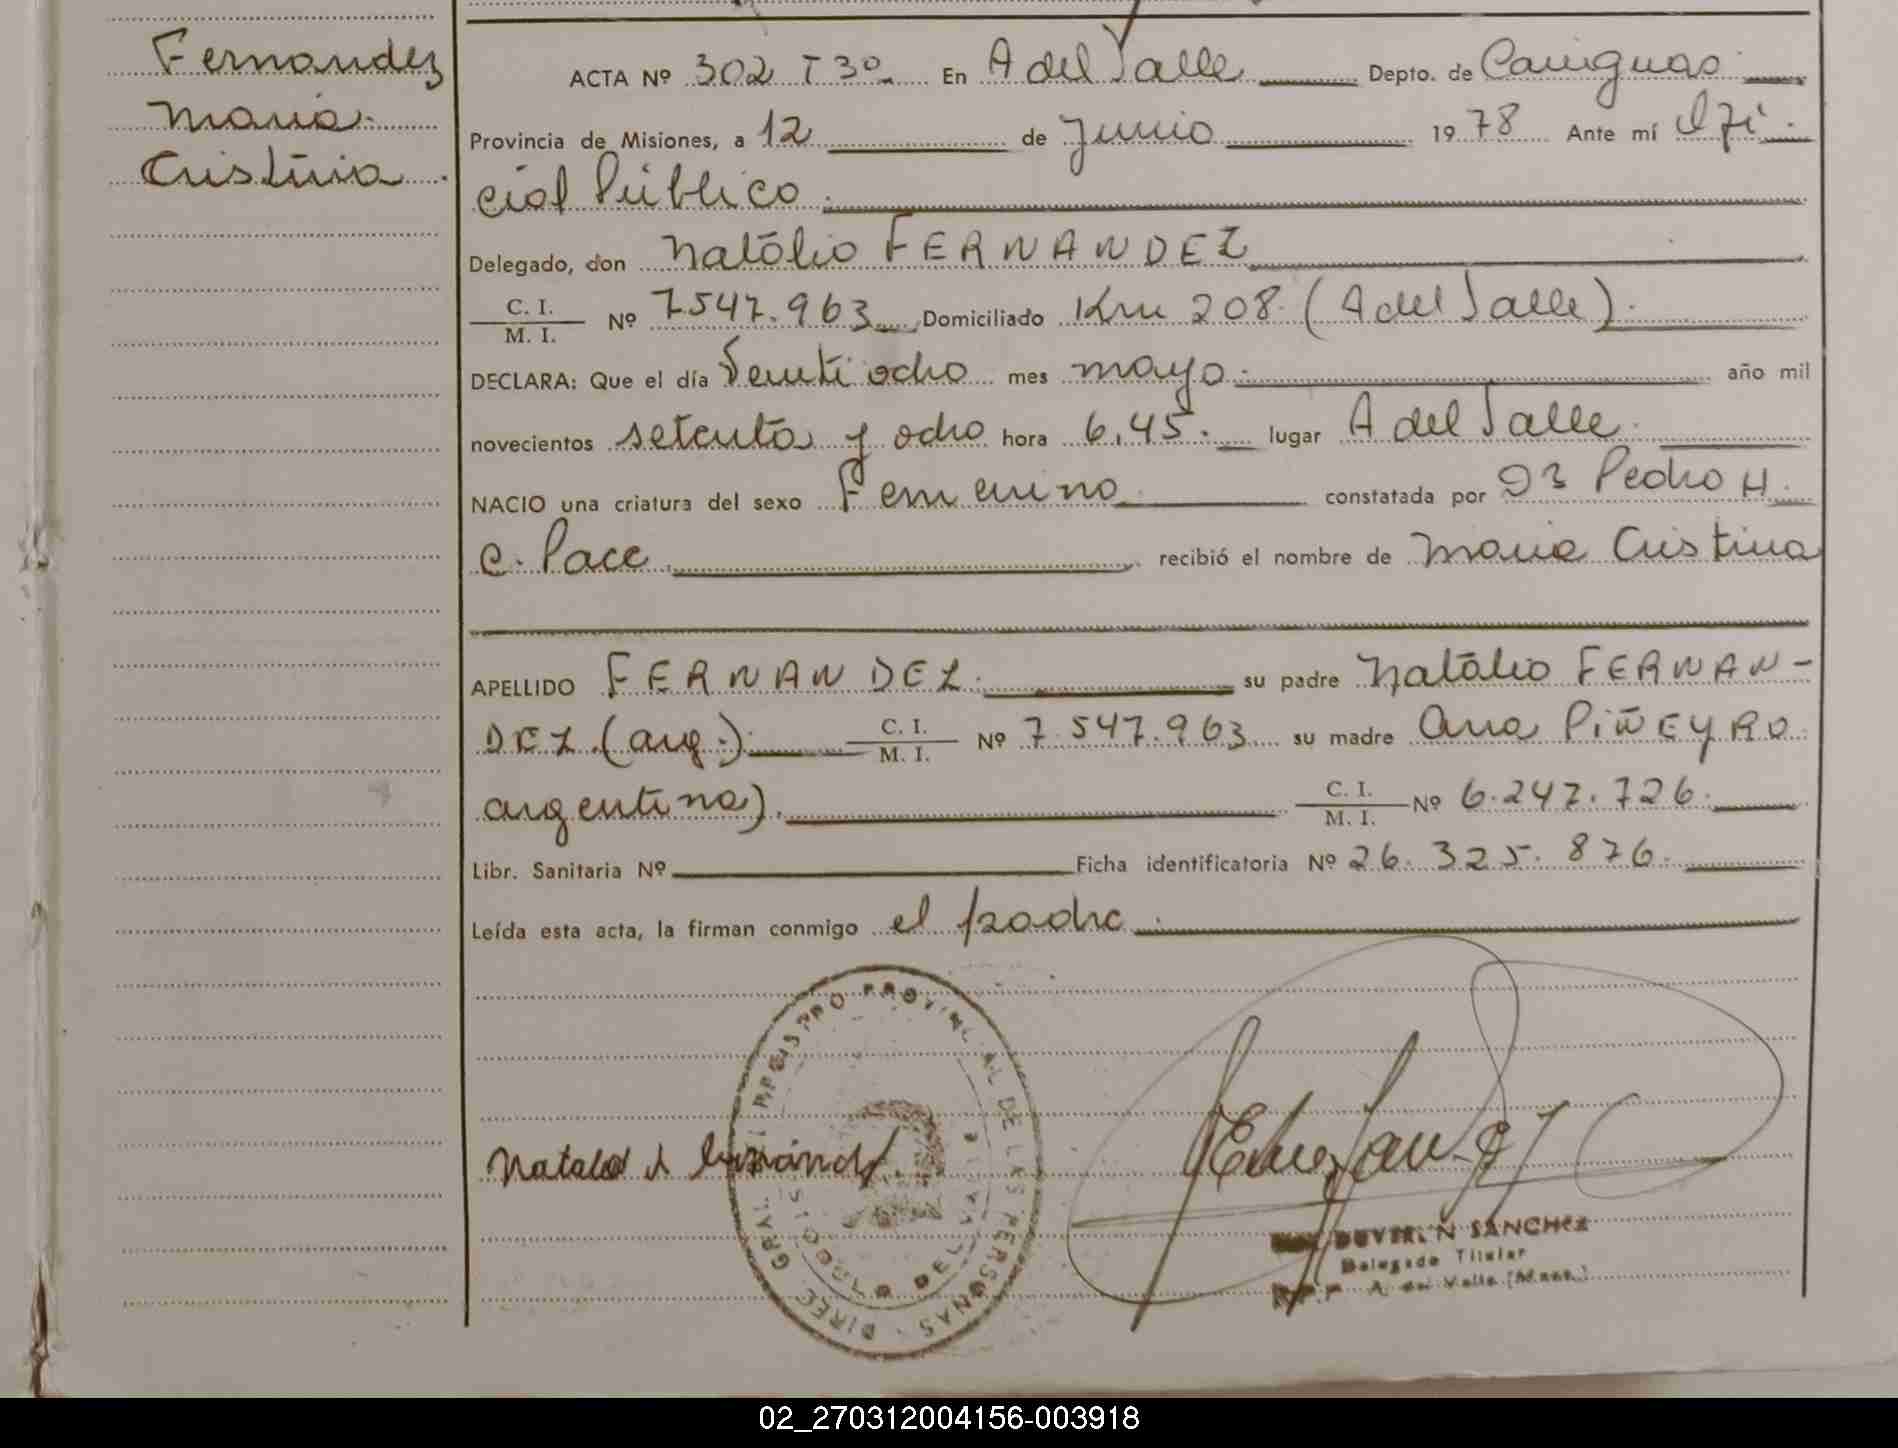 Fernandez
Maria
Cristina
ACTA Nº 302 T 3º En A del Valle Depto. de Cainguas
Provincia de Misiones, a 12 de Junio 1978 Ante mí Ofi-
cial Público
Delegado, don Natálio FERNANDEZ
C. I.
M. I. Nº 7547.963 Domiciliado Km 208 (A del Valle).
DECLARA: Que el día Veintiocho mes mayo año mil
novecientos setenta y ocho hora 6,45. lugar A del Valle.
NACIO una criatura del sexo Femenino constatada por Dr Pedro H.
C. Pace recibió el nombre de Maria Cristina
APELLIDO FERNANDEZ. su padre Natálio FERNAN-
DEZ (arg.). C. I. M. I. Nº 7.547.963 su madre Ana PIÑEYRO
argentina). C. I. M. I. Nº 6.247.726.
Libr. Sanitaria Nº Ficha identificatoria Nº 26.325.876.
Leída esta acta, la firman conmigo el padre.
REGISTRO PROVINCIAL DE LAS PERSONAS · DIREC. GRAL.
DEL VALLE
SANCHEZ
Delegado Titular
A. del Valle (Mnes.)
02_270312004156-003918